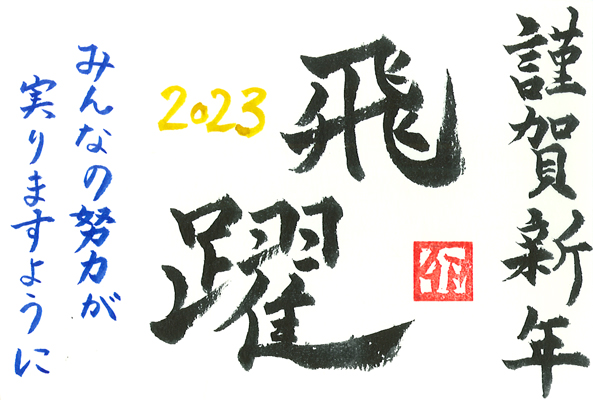 謹賀新年
飛躍
2023
みんなの努力が
実りますように